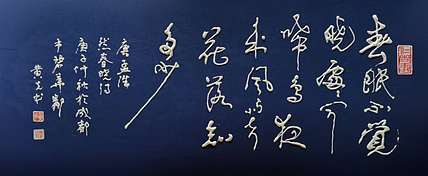 春眠不覺
曉處々聞
啼鳥夜
來風雨聲
花落知
多少
唐孟浩
然春曉詩
庚子仲秋於成都
市碧華鄰
黄